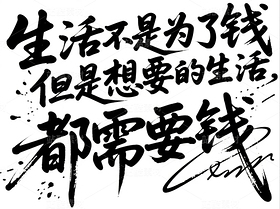 生活不是为了钱
但是想要的生活
都需要钱